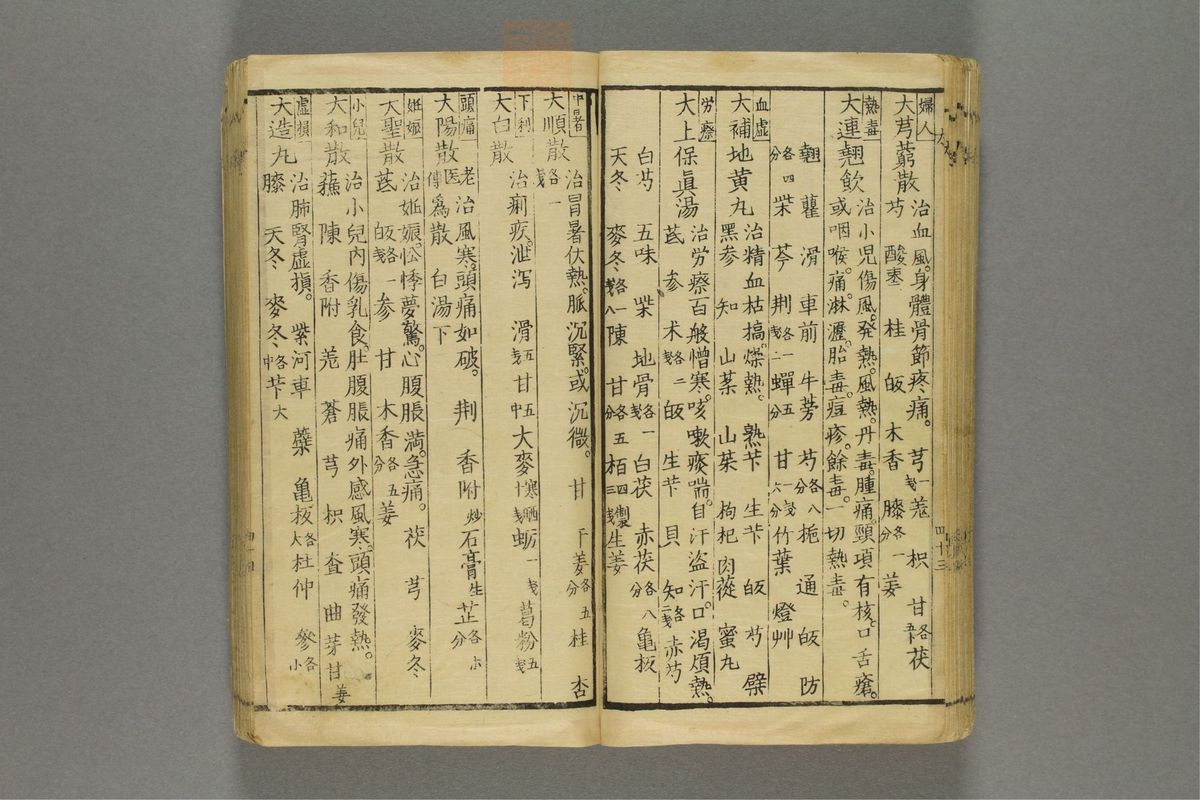 婦人
大芎藭散 治血風。身體骨節疼痛。 芎一戔 羌 枳 甘各五卜 茯
芍 酸枣 桂 皈 木香 膝各一分 姜
熱毒
大連翹飲 治小児傷風。発熱。風熱。丹毒。腫痛。頸項有核。口舌瘡。
或咽喉。痛。淋瀝。胎毒。痘疹。餘毒。一切熱毒。
翹 瞿 滑 車前 牛蒡 芍各八分 梔 通 皈 防
各四分 柴 芩 荆各一戔二 蟬五分 甘一戔六分 竹葉 燈艸
血虛
大補地黄丸 治精血枯搞。燥熱。 熟芐 生芐 皈 芍 檗
黑参 知 山薬 山茱 枸杞 肉蓯 蜜丸
労瘵
大上保眞湯 治労瘵百般憎寒。咳嗽痰喘。自汗盗汗。口渴煩熱。
芪 参 术各二戔 皈 生芐 貝 知各二戔 赤芍
白芍 五味 柴 地骨各一戔 白茯 赤茯各八分 亀板
天冬 麥冬各一戔八 陳 甘各五分 栢四製三戔 生姜
四十三
中暑
大順散 治冒暑伏熱。脈沉緊。或沉微。 甘 干姜各五分 桂 杏
各一戔
下利
大白散 治痢疾。泄泻 滑五戔 甘五中 大麥寒晒十戔 蛎一戔 葛粉五戔
頭痛
大陽散 老医傳 治風寒。頭痛如破。 荆 香附炒 石膏生 芷各小分
爲散 白湯下
姙娠
大聖散 治姙娠。忪悸夢驚。心腹脹満。急痛。 茯 芎 麥冬
芪 皈各一戔 参 甘 木香各五分 姜
小兒
大和散 治小兒内傷乳食。肚腹脹痛外感風寒。頭痛發熱。
蘓 陳 香附 羌 蒼 芎 枳 査 曲 芽 甘 姜
虛損
大造丸 治肺腎虛損。 紫河車 檗 亀板各大 杜仲 參各小
膝 天冬 麥冬各中 芐大